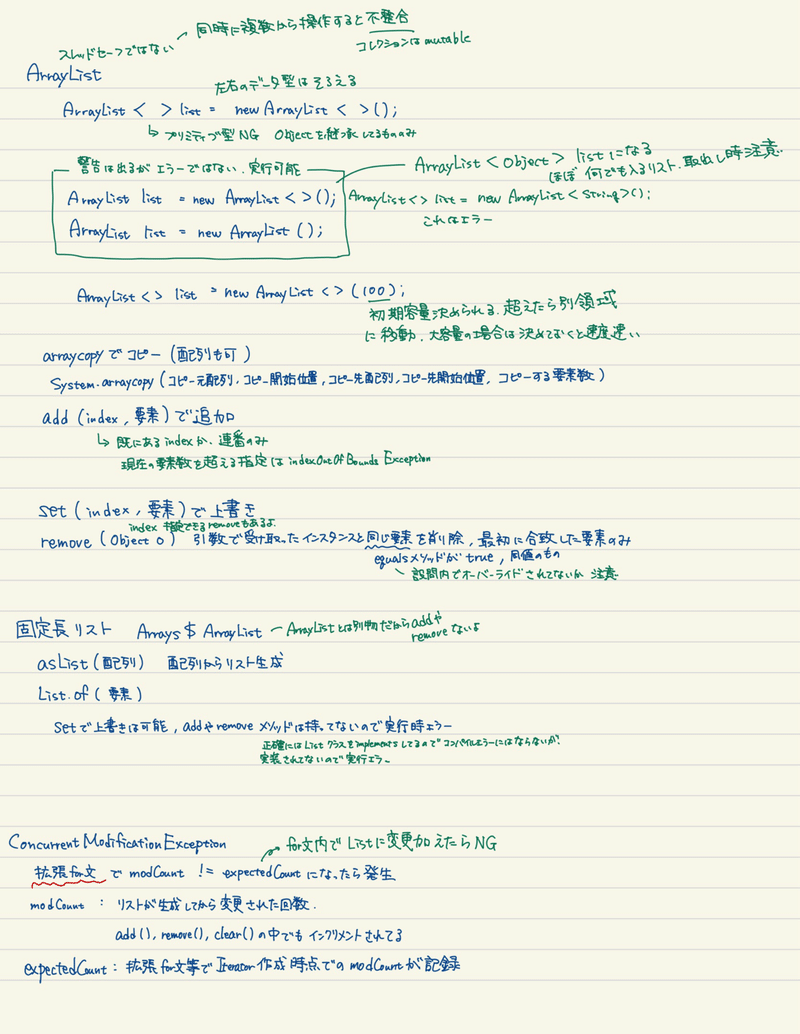 同時に複数から操作すると不整合
スレッドセーフではない
コレクションはmutable
ArrayList
左右のデータ型はそろえる
ArrayList < > list = new ArrayList < >();
↳ プリミティブ型NG Objectを継承してるもののみ
警告は出るがエラーではない、実行可能
ArrayList <Object> listになる
ほぼ何でも入るリスト、取出し時注意
ArrayList list = new ArrayList < >();
ArrayList<> list = new ArrayList <String>();
これはエラー
ArrayList list = new ArrayList ();
ArrayList <> list = new ArrayList <> (100);
初期容量決められる、超えたら別領域
に移動、大容量の場合は決めておくと速度速い
arraycopyでコピー (配列も可)
System.arraycopy (コピー元配列, コピー開始位置, コピー先配列, コピー先開始位置, コピーする要素数)
add (index, 要素) で追加
↳ 既にあるindexか、連番のみ
現在の要素数を超える指定はindexOutOfBounds Exception
set (index, 要素) で上書き
index 指定できるremoveもあるよ
remove (Object o) 引数で受け取ったインスタンスと同じ要素を削除, 最初に合致した要素のみ
equalsメソッドがtrue, 同値のもの
設問内でオーバーライドされてないか 注意
固定長リスト Arrays$ArrayList ー ArrayListとは別物だからaddや
removeないよ
asList (配列) 配列からリスト生成
List.of (要素)
setで上書きは可能, addやremoveメソッドは持ってないので実行時エラー
正確にはListクラスをimplementsしてるのでコンパイルエラーにはならないが、
実装されてないので実行エラー
Concurrent Modification Exception
for文内でListに変更加えたらNG
拡張for文 で modCount != expectedCount になったら発生
modCount : リストが生成してから変更された回数.
add(), remove(), clear()の中でもインクリメントされてる
expectedCount : 拡張for文等でIterator作成時点でのmodCountが記録